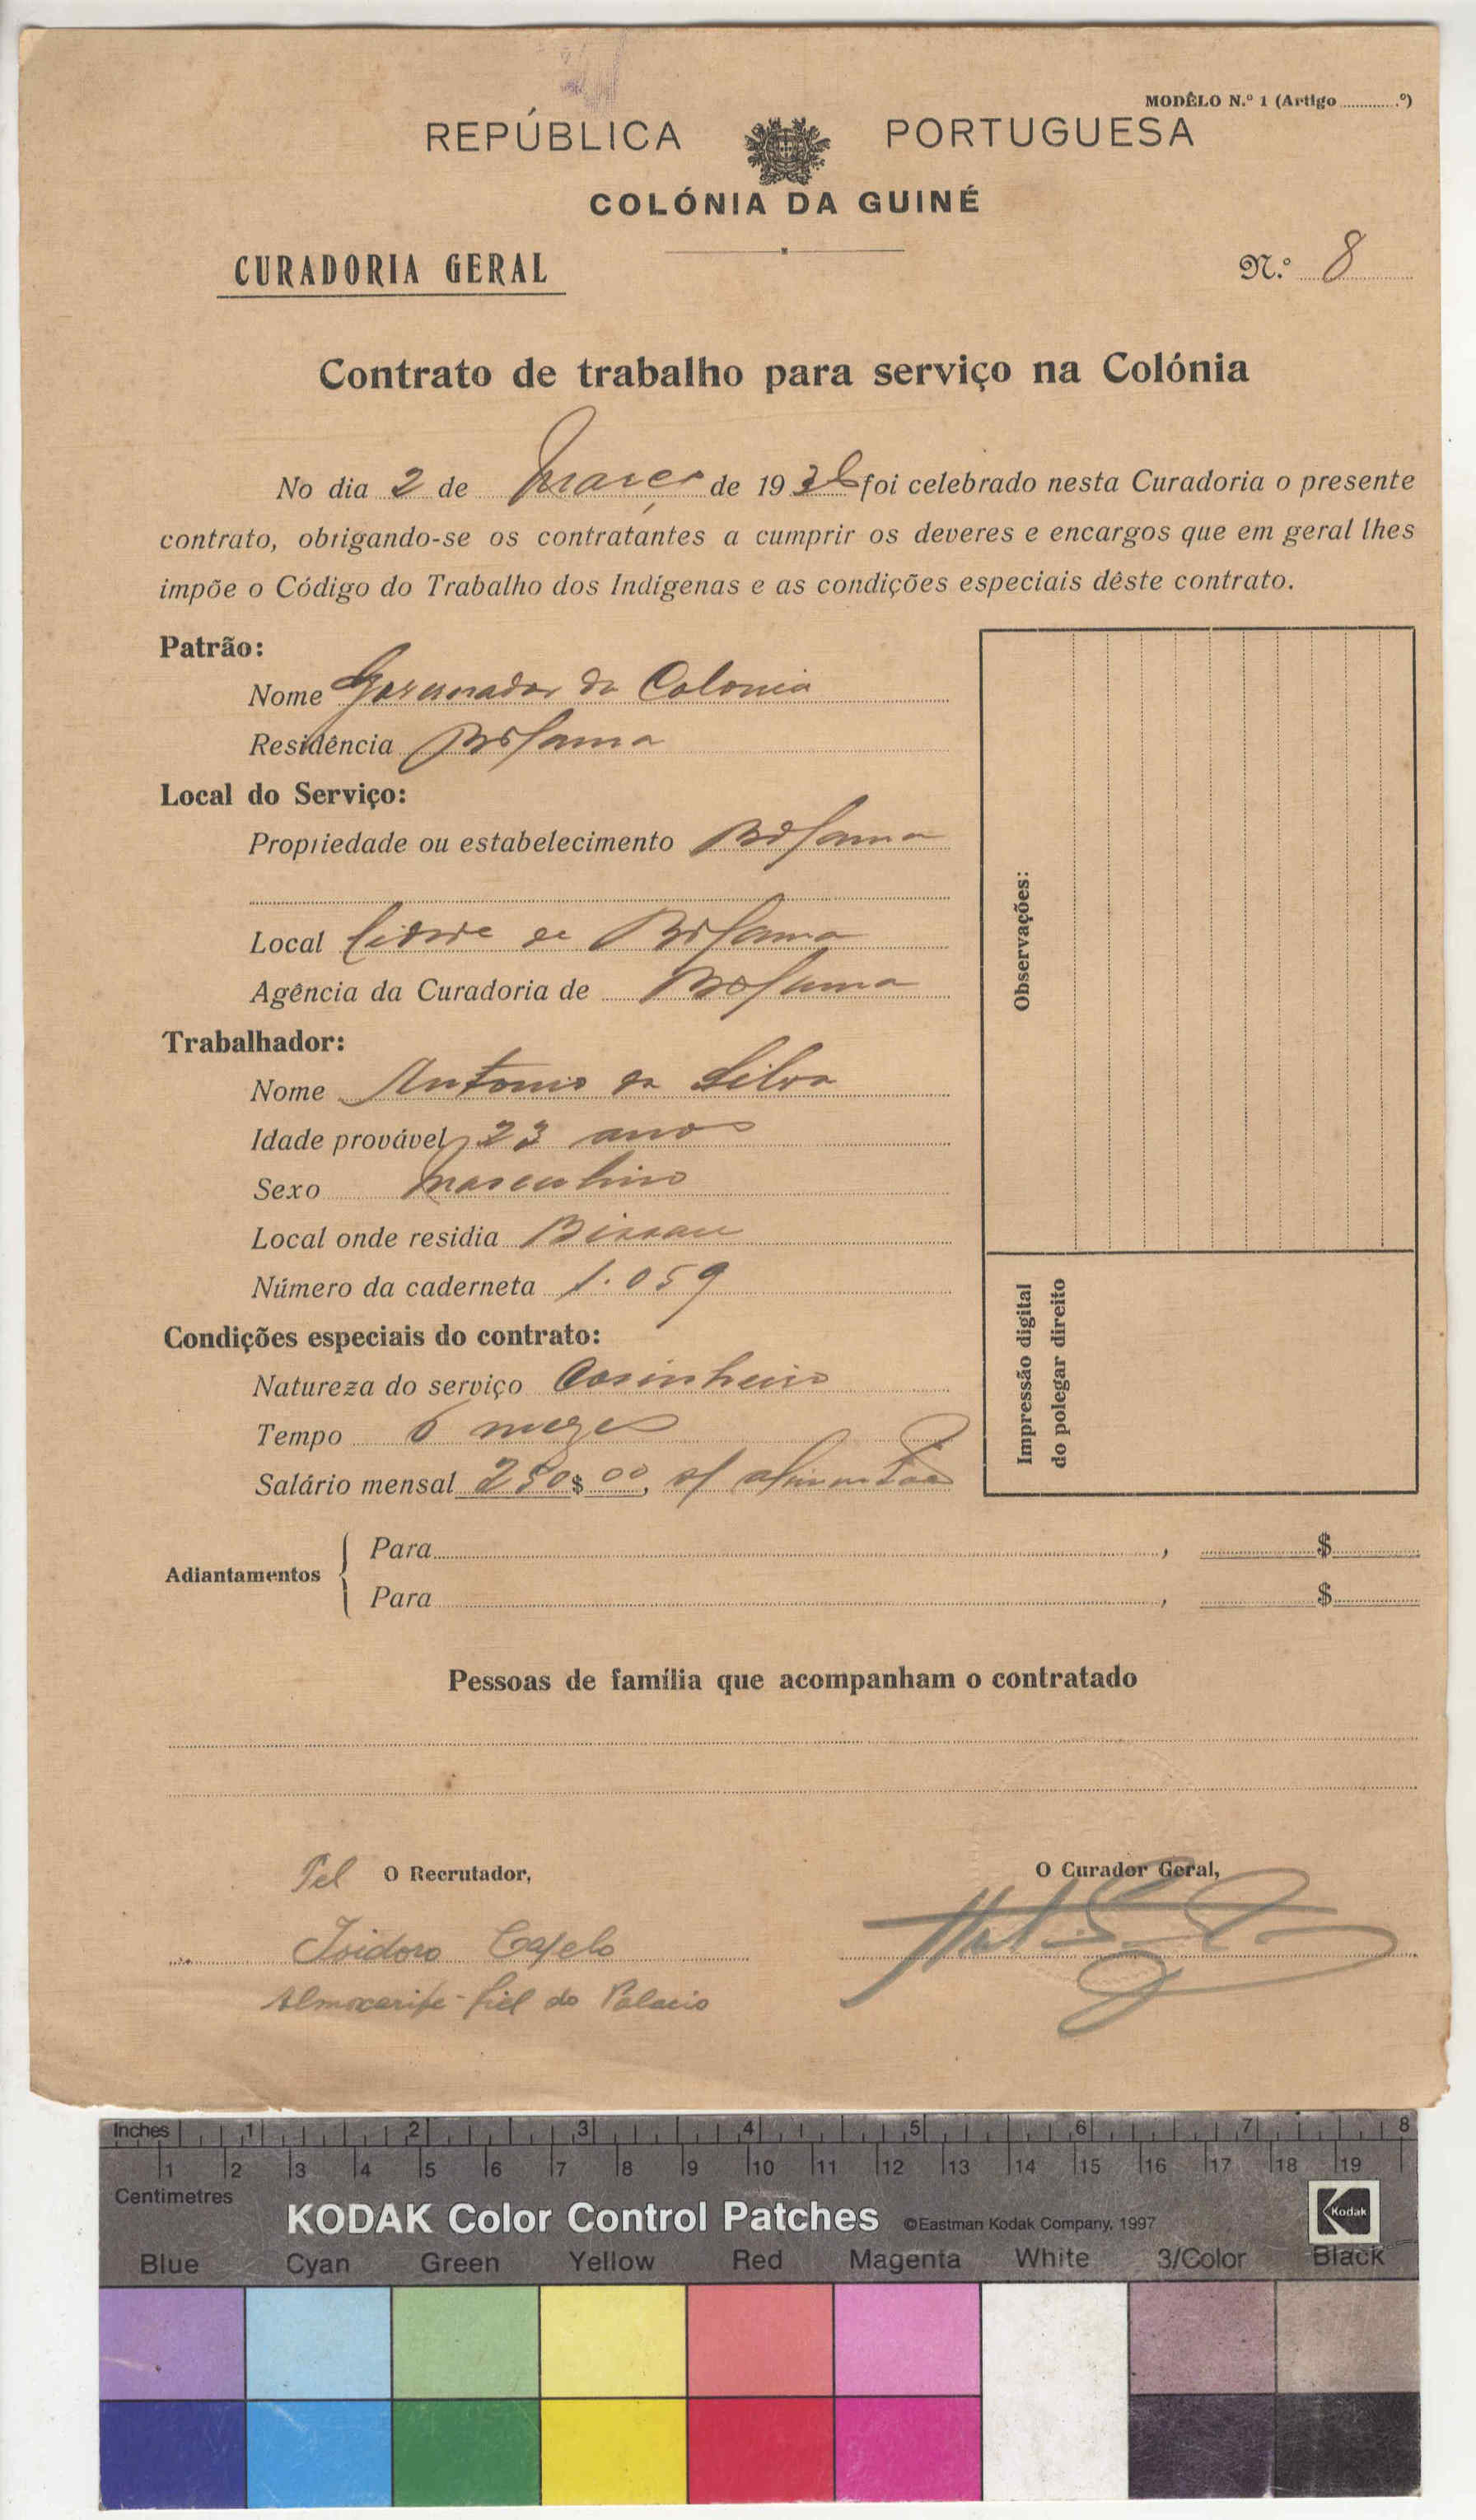 MODÊLO N.º 1 (Artigo ............º)
REPÚBLICA PORTUGUESA
COLÓNIA DA GUINÉ
CURADORIA GERAL
N.º 8
Contrato de trabalho para serviço na Colónia
No dia 2 de Março de 193 foi celebrado nesta Curadoria o presente
contrato, obrigando-se os contratantes a cumprir os deveres e encargos que em geral lhes
impõe o Código do Trabalho dos Indígenas e as condições especiais dêste contrato.
Patrão:
Nome Governador da Colonia
Residência Bolama
Local do Serviço:
Propriedade ou estabelecimento Bolama
Local Cidade de Bolama
Agência da Curadoria de Bolama
Trabalhador:
Nome Antonio da Silva
Idade provável 23 anos
Sexo masculino
Local onde residia Bissau
Número da caderneta 1.059
Condições especiais do contrato:
Natureza do serviço Cosinheiro
Tempo 6 mezes
Salário mensal 250$00, s/ alimentação
Observações:
Impressão digital
do polegar direito
Adiantamentos
Para , $
Para , $
Pessoas de família que acompanham o contratado
Pel O Recrutador,
O Curador Geral,
Isidoro
Almoxarife-fiel do Palacio
Inches 1 2 3 4 5 6 7 8
1 2 3 4 5 6 7 8 9 10 11 12 13 14 15 16 17 18 19
Centimetres
KODAK Color Control Patches ©Eastman Kodak Company, 1997 Kodak
Blue Cyan Green Yellow Red Magenta White 3/Color Black